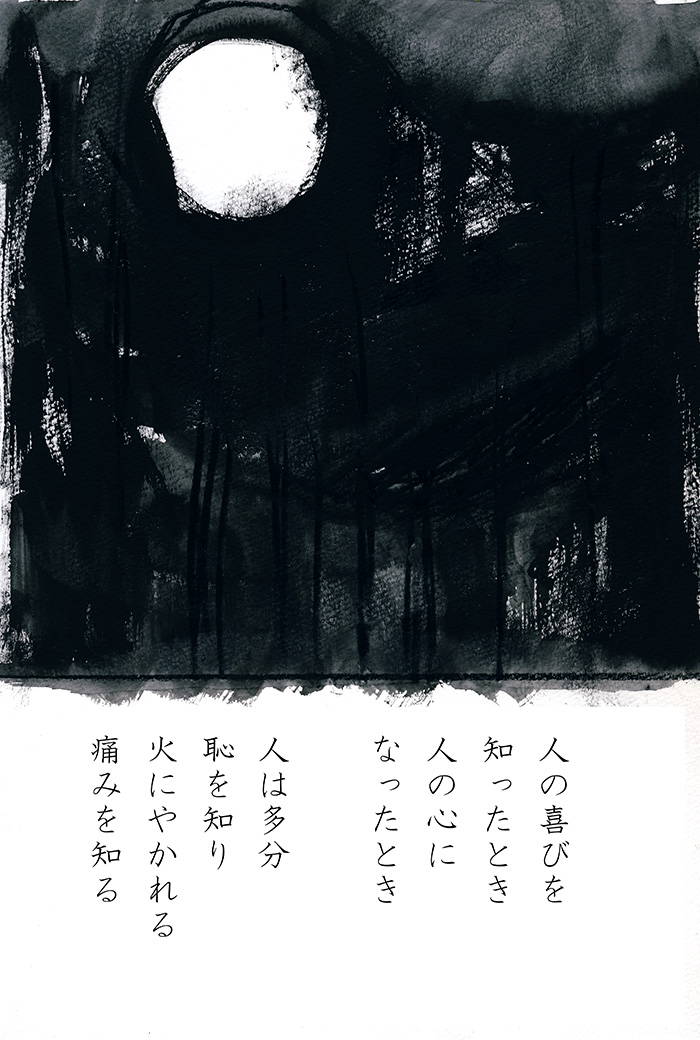 人の喜びを
知ったとき
人の心に
なったとき
人は多分
恥を知り
火にやかれる
痛みを知る